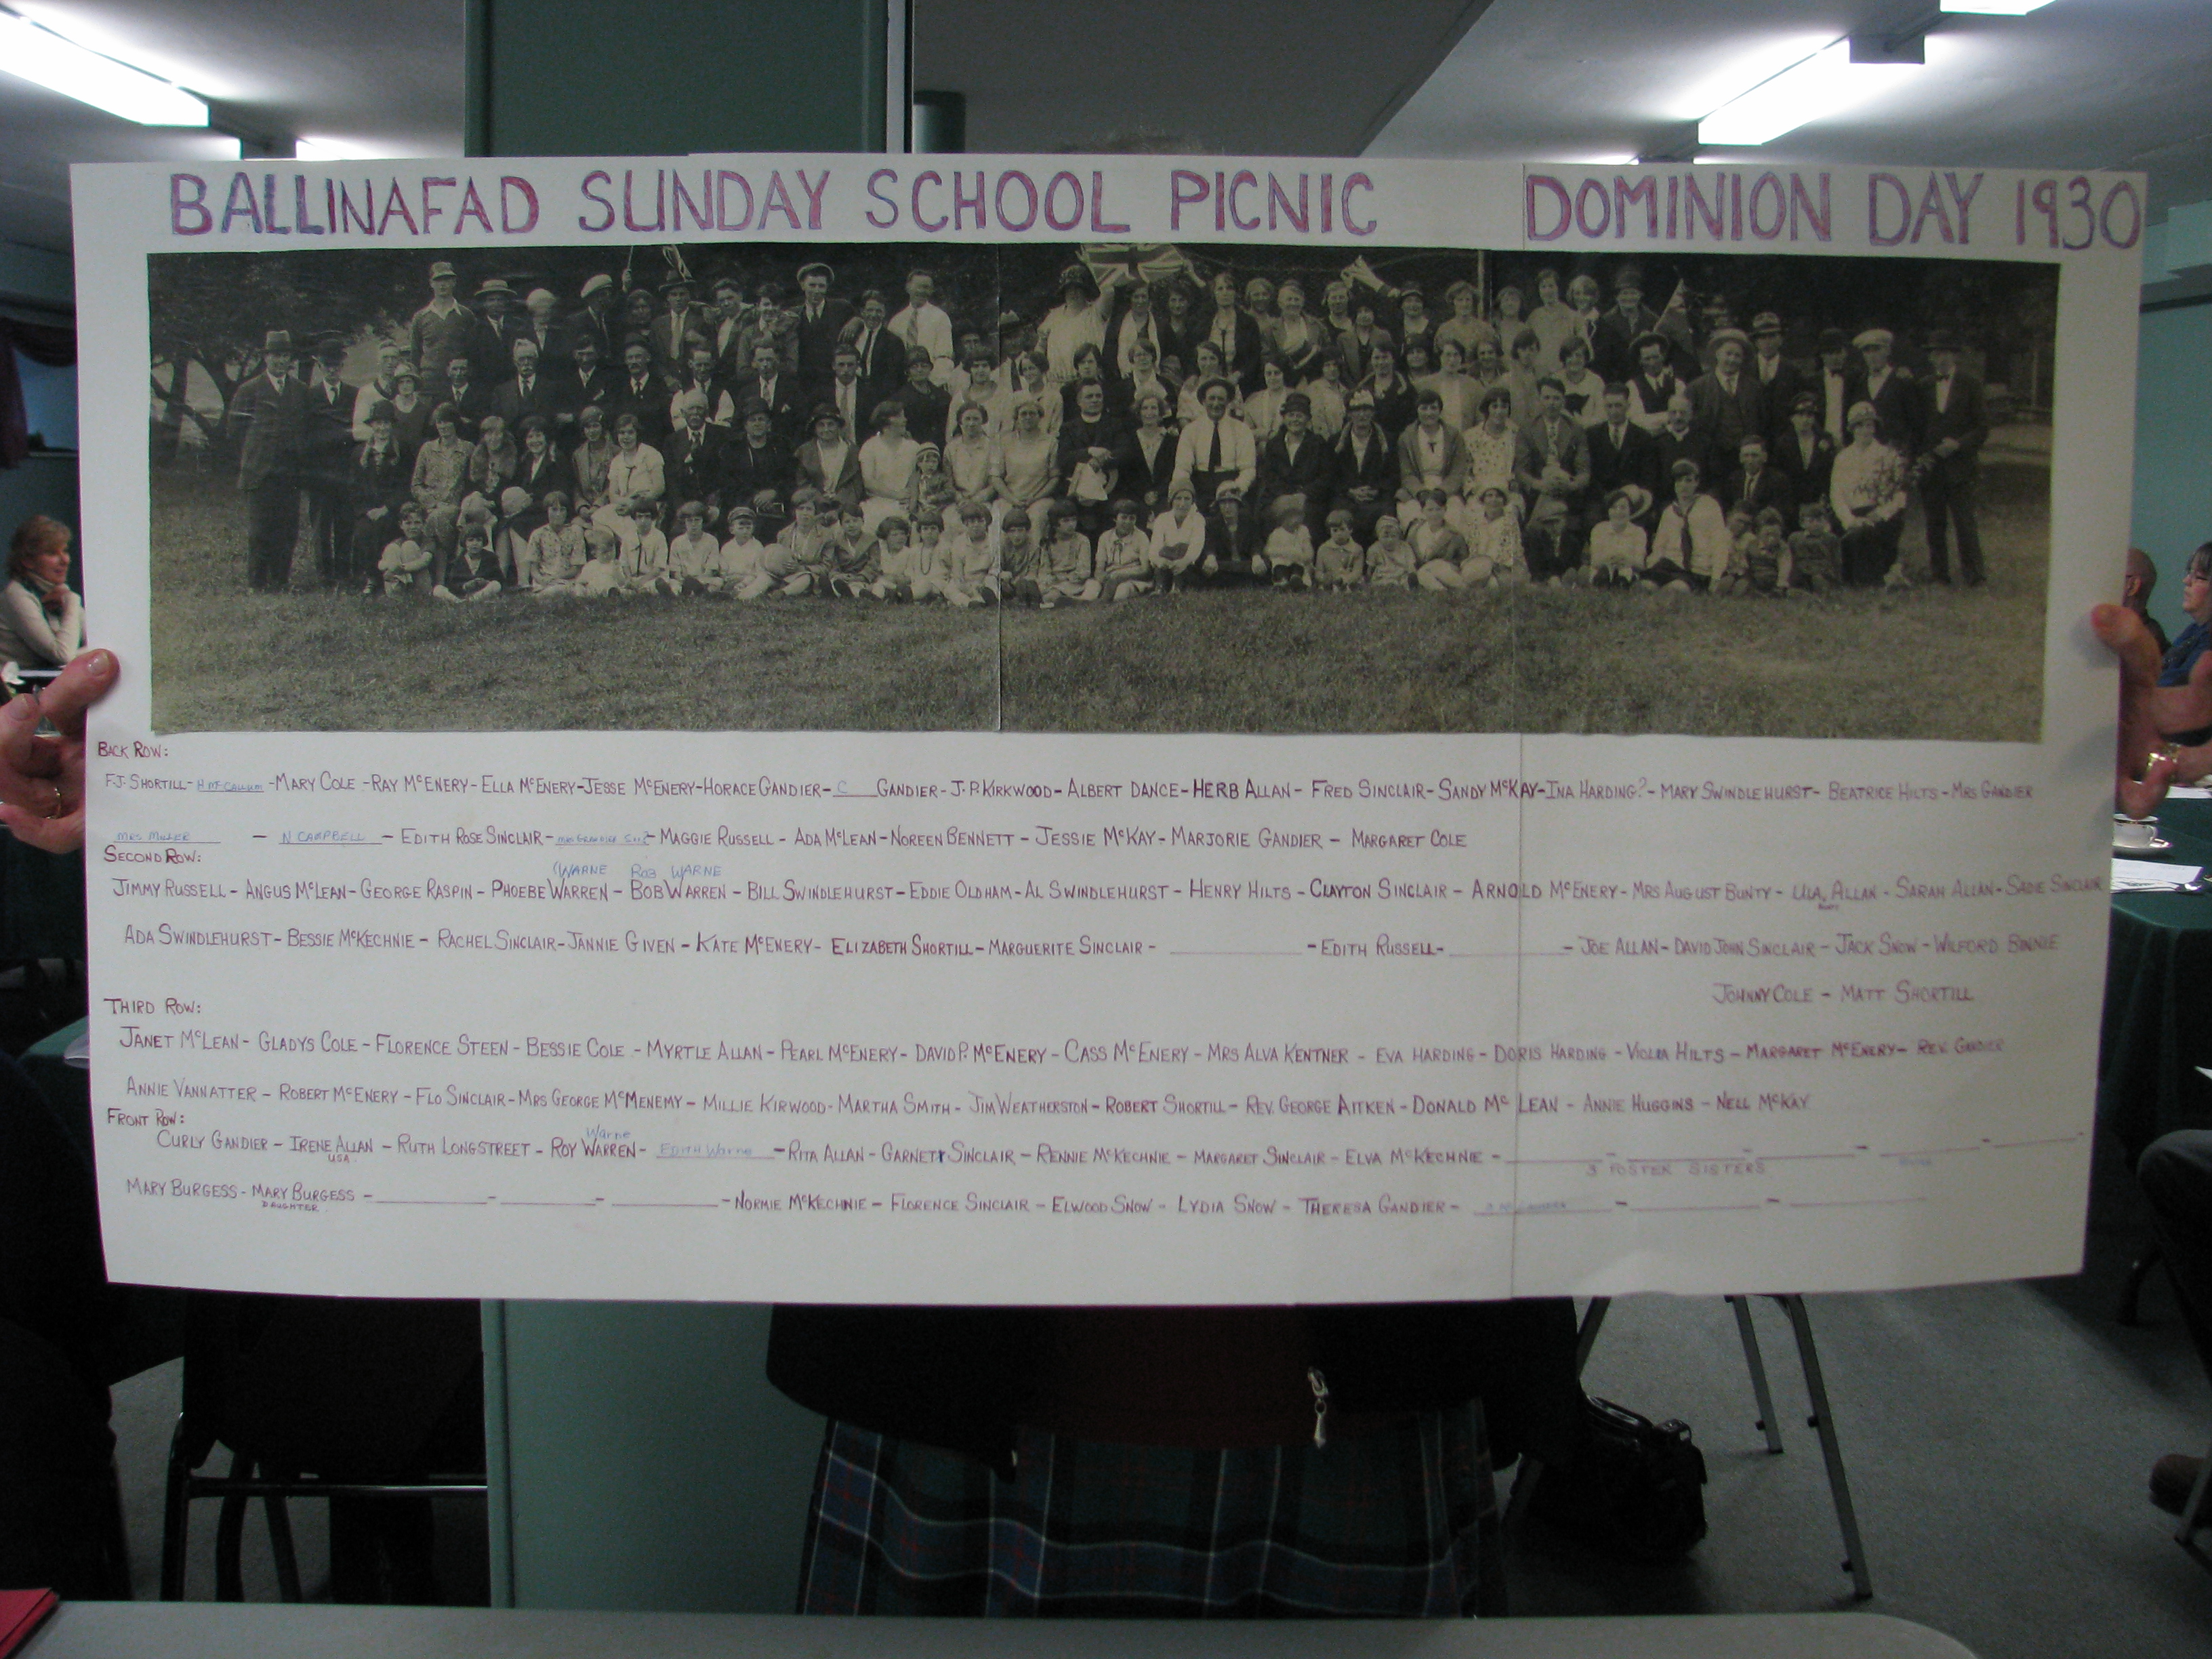 BALLINAFAD SUNDAY SCHOOL PICNIC DOMINION DAY 1930
BACK ROW:
F.J. SHORTILL - H McCALLUM - MARY COLE - RAY McENERY - ELLA McENERY - JESSE McENERY - HORACE GANDIER - C____ GANDIER - J.P. KIRKWOOD - ALBERT DANCE - HERB ALLAN - FRED SINCLAIR - SANDY McKAY - INA HARDING? - MARY SWINDLEHURST - BEATRICE HILTS - MRS GANDIER
MRS MILLER - N CAMPBELL - EDITH ROSE SINCLAIR - - MAGGIE RUSSELL - ADA McLEAN - NOREEN BENNETT - JESSIE McKAY - MARJORIE GANDIER - MARGARET COLE
SECOND ROW:
(WARNE ROB WARNE
JIMMY RUSSELL - ANGUS McLEAN - GEORGE RASPIN - PHOEBE WARREN - BOB WARREN - BILL SWINDLEHURST - EDDIE OLDHAM - AL SWINDLEHURST - HENRY HILTS - CLAYTON SINCLAIR - ARNOLD McENERY - MRS AUGUST BUNTY - ULA ALLAN - SARAH ALLAN - SADIE SINCLAIR
ADA SWINDLEHURST - BESSIE McKECHNIE - RACHEL SINCLAIR - JANNIE GIVEN - KATE McENERY - ELIZABETH SHORTILL - MARGUERITE SINCLAIR - ____ - EDITH RUSSELL - ____ - JOE ALLAN - DAVID JOHN SINCLAIR - JACK SNOW - WILFORD BINNIE
JOHNNY COLE - MATT SHORTILL
THIRD ROW:
JANET McLEAN - GLADYS COLE - FLORENCE STEEN - BESSIE COLE - MYRTLE ALLAN - PEARL McENERY - DAVID P. McENERY - CASS McENERY - MRS ALVA KENTNER - EVA HARDING - DORIS HARDING - VIOLA HILTS - MARGARET McENERY - REV. GANDIER
ANNIE VANNATTER - ROBERT McENERY - FLO SINCLAIR - MRS GEORGE McMENEMY - MILLIE KIRWOOD - MARTHA SMITH - JIM WEATHERSTON - ROBERT SHORTILL - REV. GEORGE AITKEN - DONALD McLEAN - ANNIE HUGGINS - NELL McKAY
FRONT ROW:
Warne
CURLY GANDIER - IRENE ALLAN - RUTH LONGSTREET - ROY WARREN - EDITH Warne - RITA ALLAN - GARNETT SINCLAIR - RENNIE McKECHNIE - MARGARET SINCLAIR - ELVA McKECHNIE - ____ - ____ - ____ - ____ - ____
USA
3 FOSTER SISTERS
MARY BURGESS - MARY BURGESS - ____ - ____ - ____ - NORMIE McKECHNIE - FLORENCE SINCLAIR - ELWOOD SNOW - LYDIA SNOW - THERESA GANDIER - - ____ - ____
DAUGHTER